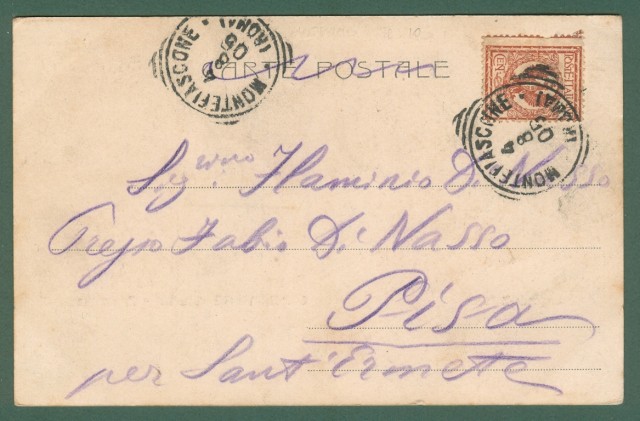 CARTE POSTALE
MONTEFIASCONE · (ROMA)
4 8 05
MONTEFIASCONE · (ROMA)
4 8 05
Sig.rino Flaminio Di Nasso
Presso Fabio Di Nasso
Pisa
per Sant'Ermete